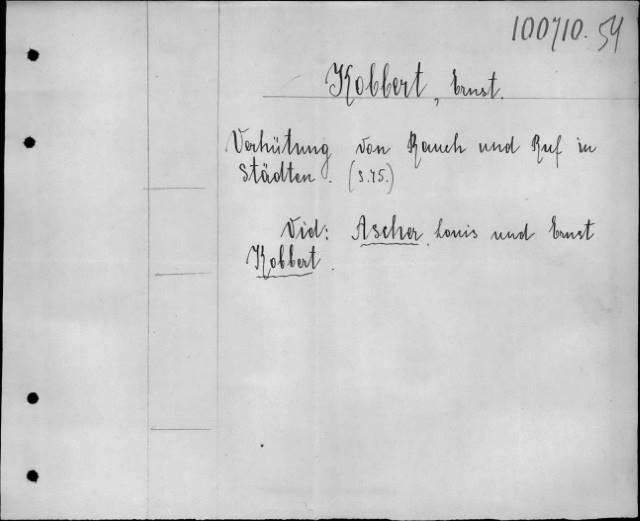 100710.54
Kobbert, Ernst.
Verhütung von Rauch und Ruf in
Städten. (S.45.)
Vid: Ascher, Louis und Ernst
Kobbert.